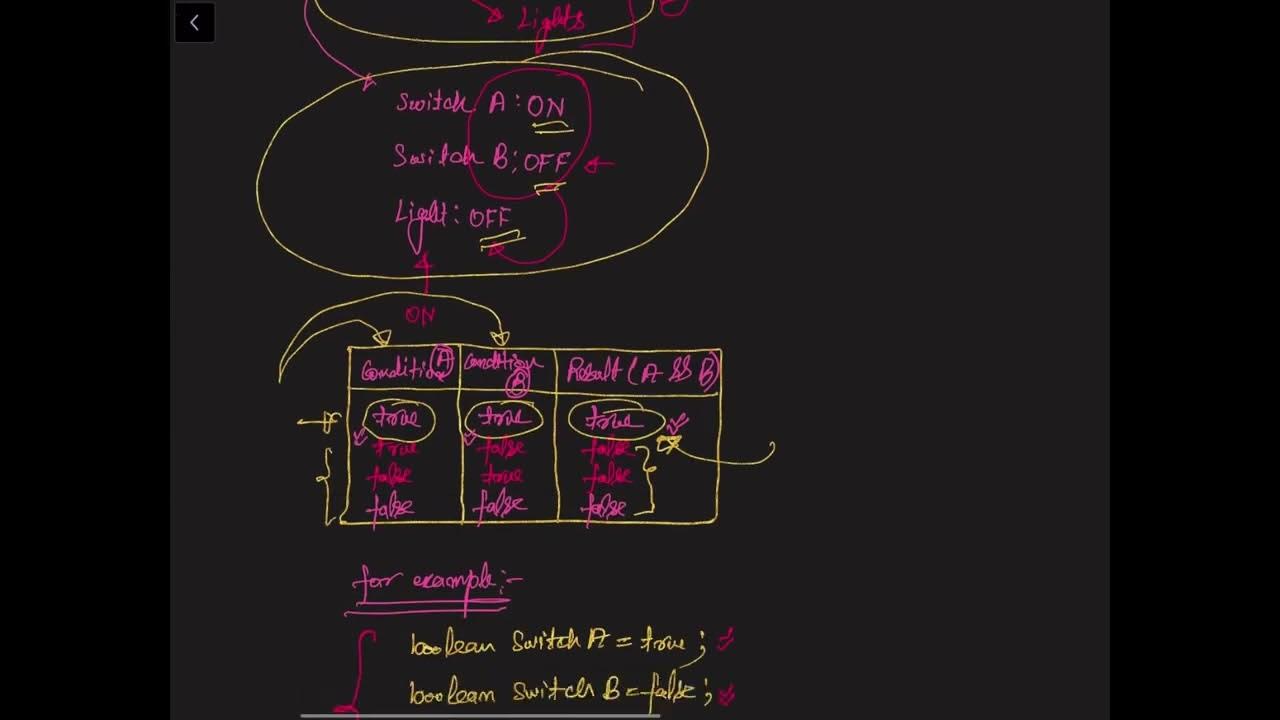 Lights
Switch A : ON
Switch B ; OFF
Light : OFF
ON
Condition A Condition B Result ( A && B )
true true true
true false false
false true false
false false false
for example :-
boolean Switch A = true ;
boolean Switch B = false ;